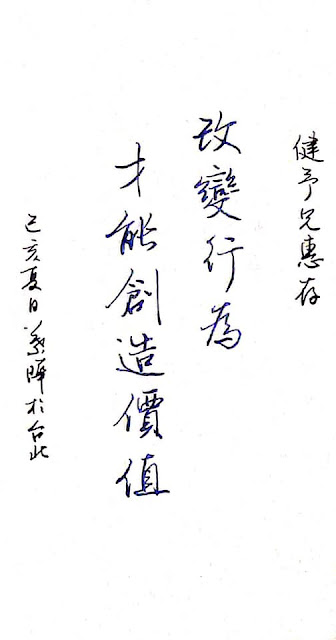 健予兄惠存
改變行為
才能創造價值
己亥夏日 於台北